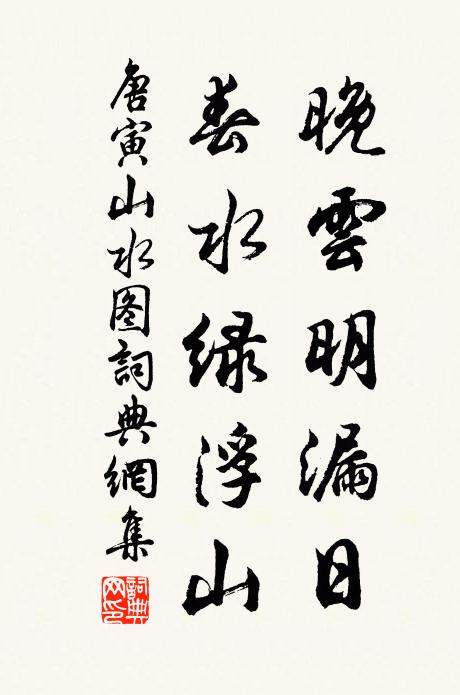 晚雲明漏日
春水绿浮山
唐寅山水图詞典網集
詞典网印